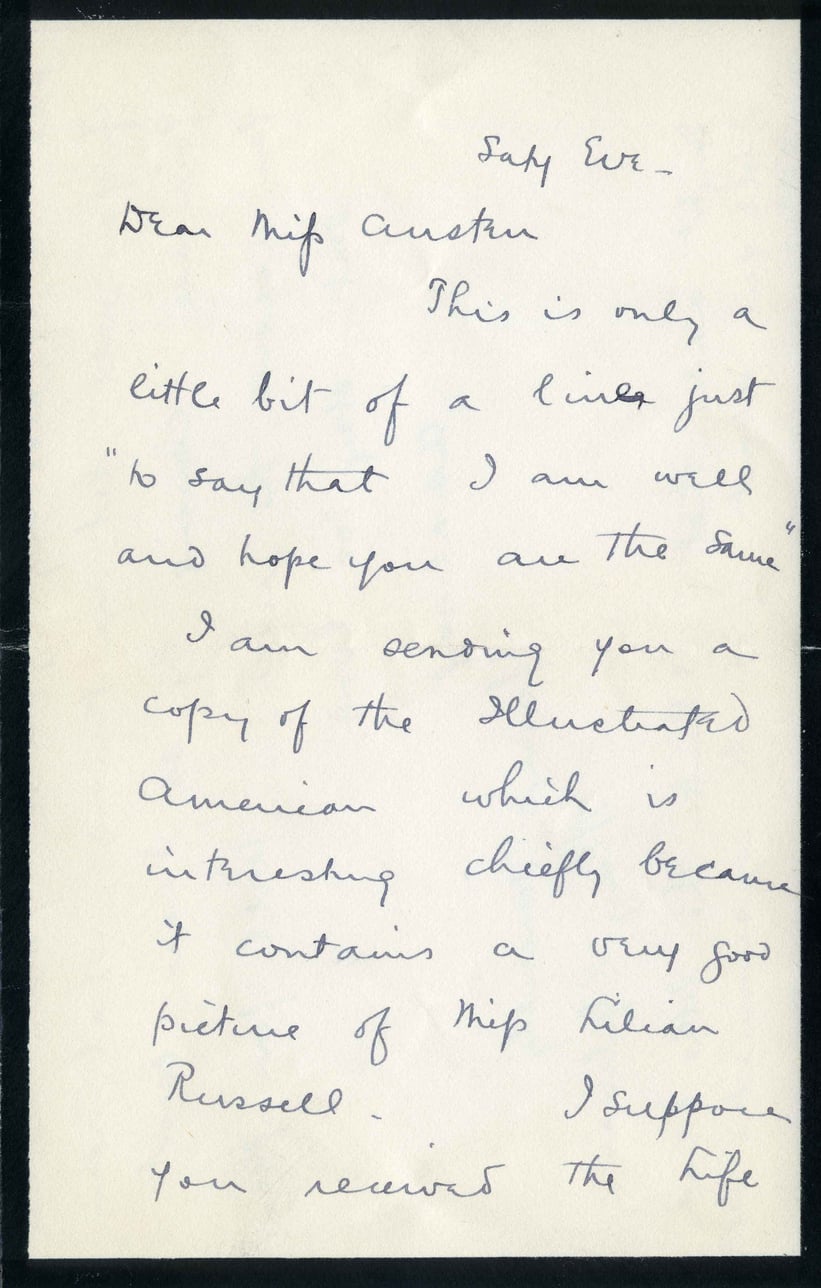 Saty Eve -
Dear Miss Austen
This is only a
little bit of a line just
"to say that I am well
and hope you are the same"
I am sending you a
copy of the Illustrated
American which is
interesting chiefly because
it contains a very good
picture of Miss Lilian
Russell. I suppose
you received the Life